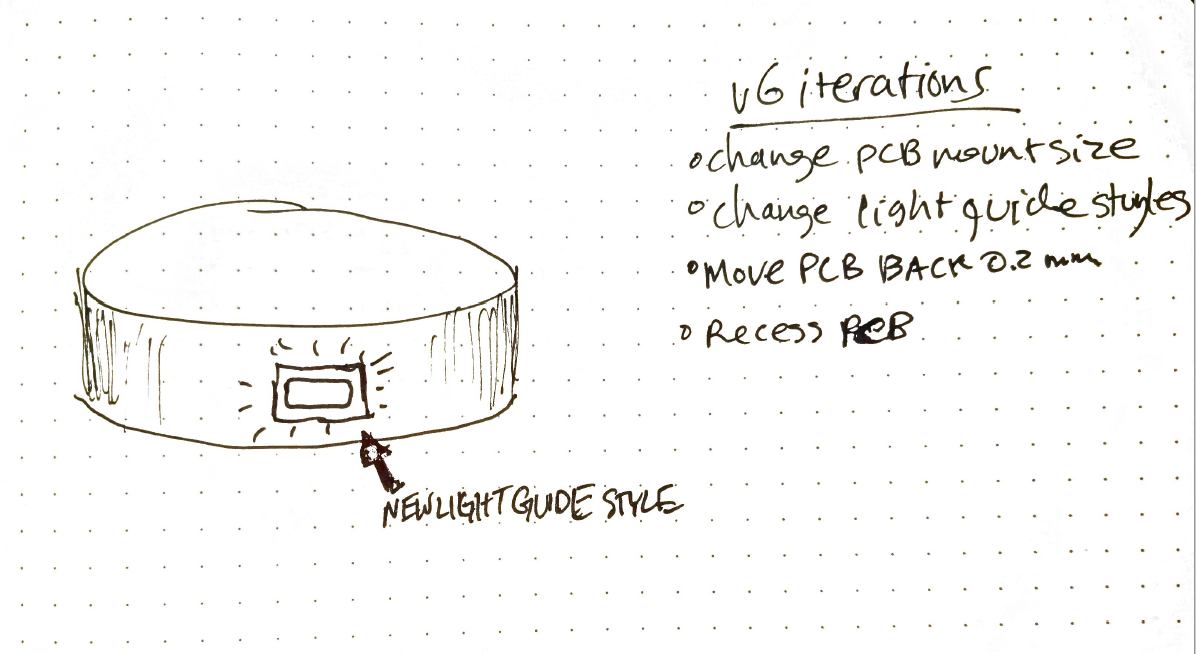 v6 iterations
change PCB mount size
change light guide styles
Move PCB BACK 0.2 mm
Recess PCB
NEW LIGHT GUIDE STYLE